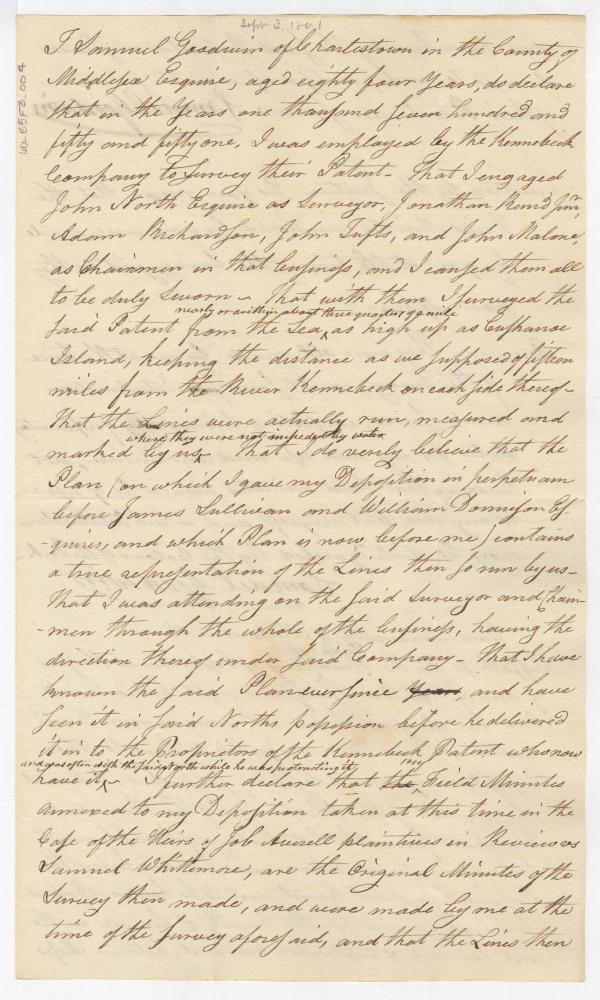 Sept 3, 1801
W-25F3-004
I Samuel Goodwin of Charlestown in the County of
Middlesex Esquire, aged eighty four Years, do declare
that in the Years one thousand seven hundred and
fifty and fifty one, I was employed by the Kennebeck
Company to survey their Patent - That I engaged
John North Esquire as Surveyor, Jonathan Junr,
Adam Richardson, John Tufts, and John Malone,
as Chainmen in that business, and I caused them all
to be duly sworn - That with them I surveyed the
nearly or within about three quarters of a mile
said Patent from the Sea, as high up as Cushanoe
Island, keeping the distance as we supposed of fifteen
miles from the River Kennebeck on each side thereof-
That the Lines were actually run, measured and
where they were not impeded by water
marked by us - That I do verely believe that the
Plan (on which I gave my Deposition in perpetuam
before James Sullivan and William Donnison Es
-quires, and which Plan is now before me) contains
a true representation of the Lines then so run by us-
That I was attending on the said Surveyor and Chain-
-men through the whole of the business, having the
direction thereof under said Company - That I have
known the said Plan ever since Years, and have
seen it in said Norths possession before he delivered
it in to the Proprietors of the Kennebeck Patent who now
and was often with the said North while he was protracting it my
have it - I further declare that the Field Minutes
annexed to my Deposition taken at this time in the
Case of the Heirs of Job Averell plaintives in Review vs
Samuel Whittemore, are the Original Minutes of the
Survey then made, and were made by me at the
time of the survey aforesaid, and that the Lines then